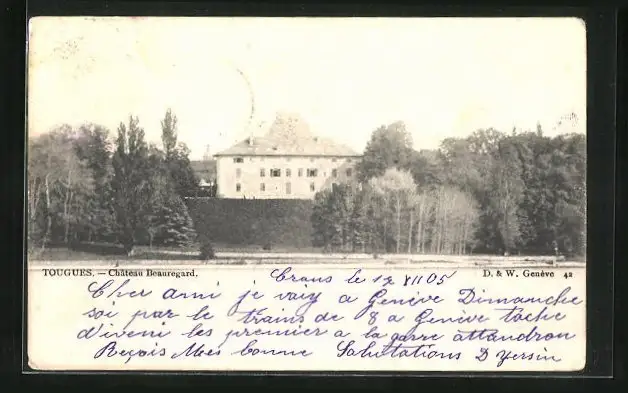 TOUGUES. — Château Beauregard.
D. & W. Genève 42
Crans le 12 VII 05
Cher ami je vaiz a Genève Dimanche
soi par le trains de 8 a Genève tache
d'iveni les premier a la garre attandron
Reçois Mes bonne Salutations D Yersin